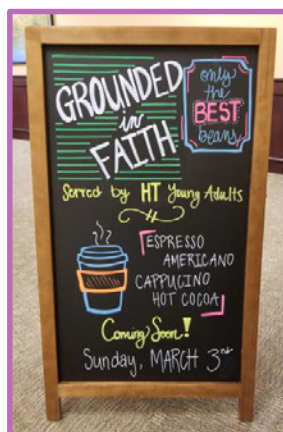 GROUNDED
in
FAITH
only
the
BEST
beans
Served by HT Young Adults
ESPRESSO
AMERICANO
CAPPUCINO
HOT COCOA
Coming Soon!
Sunday, MARCH 3rd